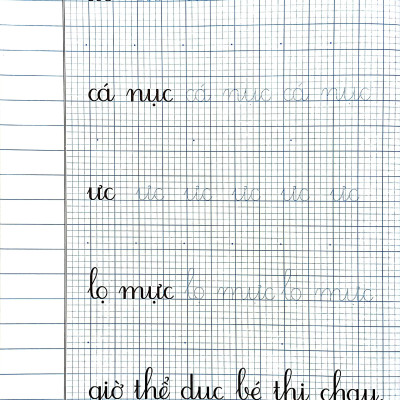 cá nục cá nục cá nục
ưc ưc ưc ưc ưc ưc
lọ mực lọ mực lọ mực
giờ thể dục bé thi chạy.